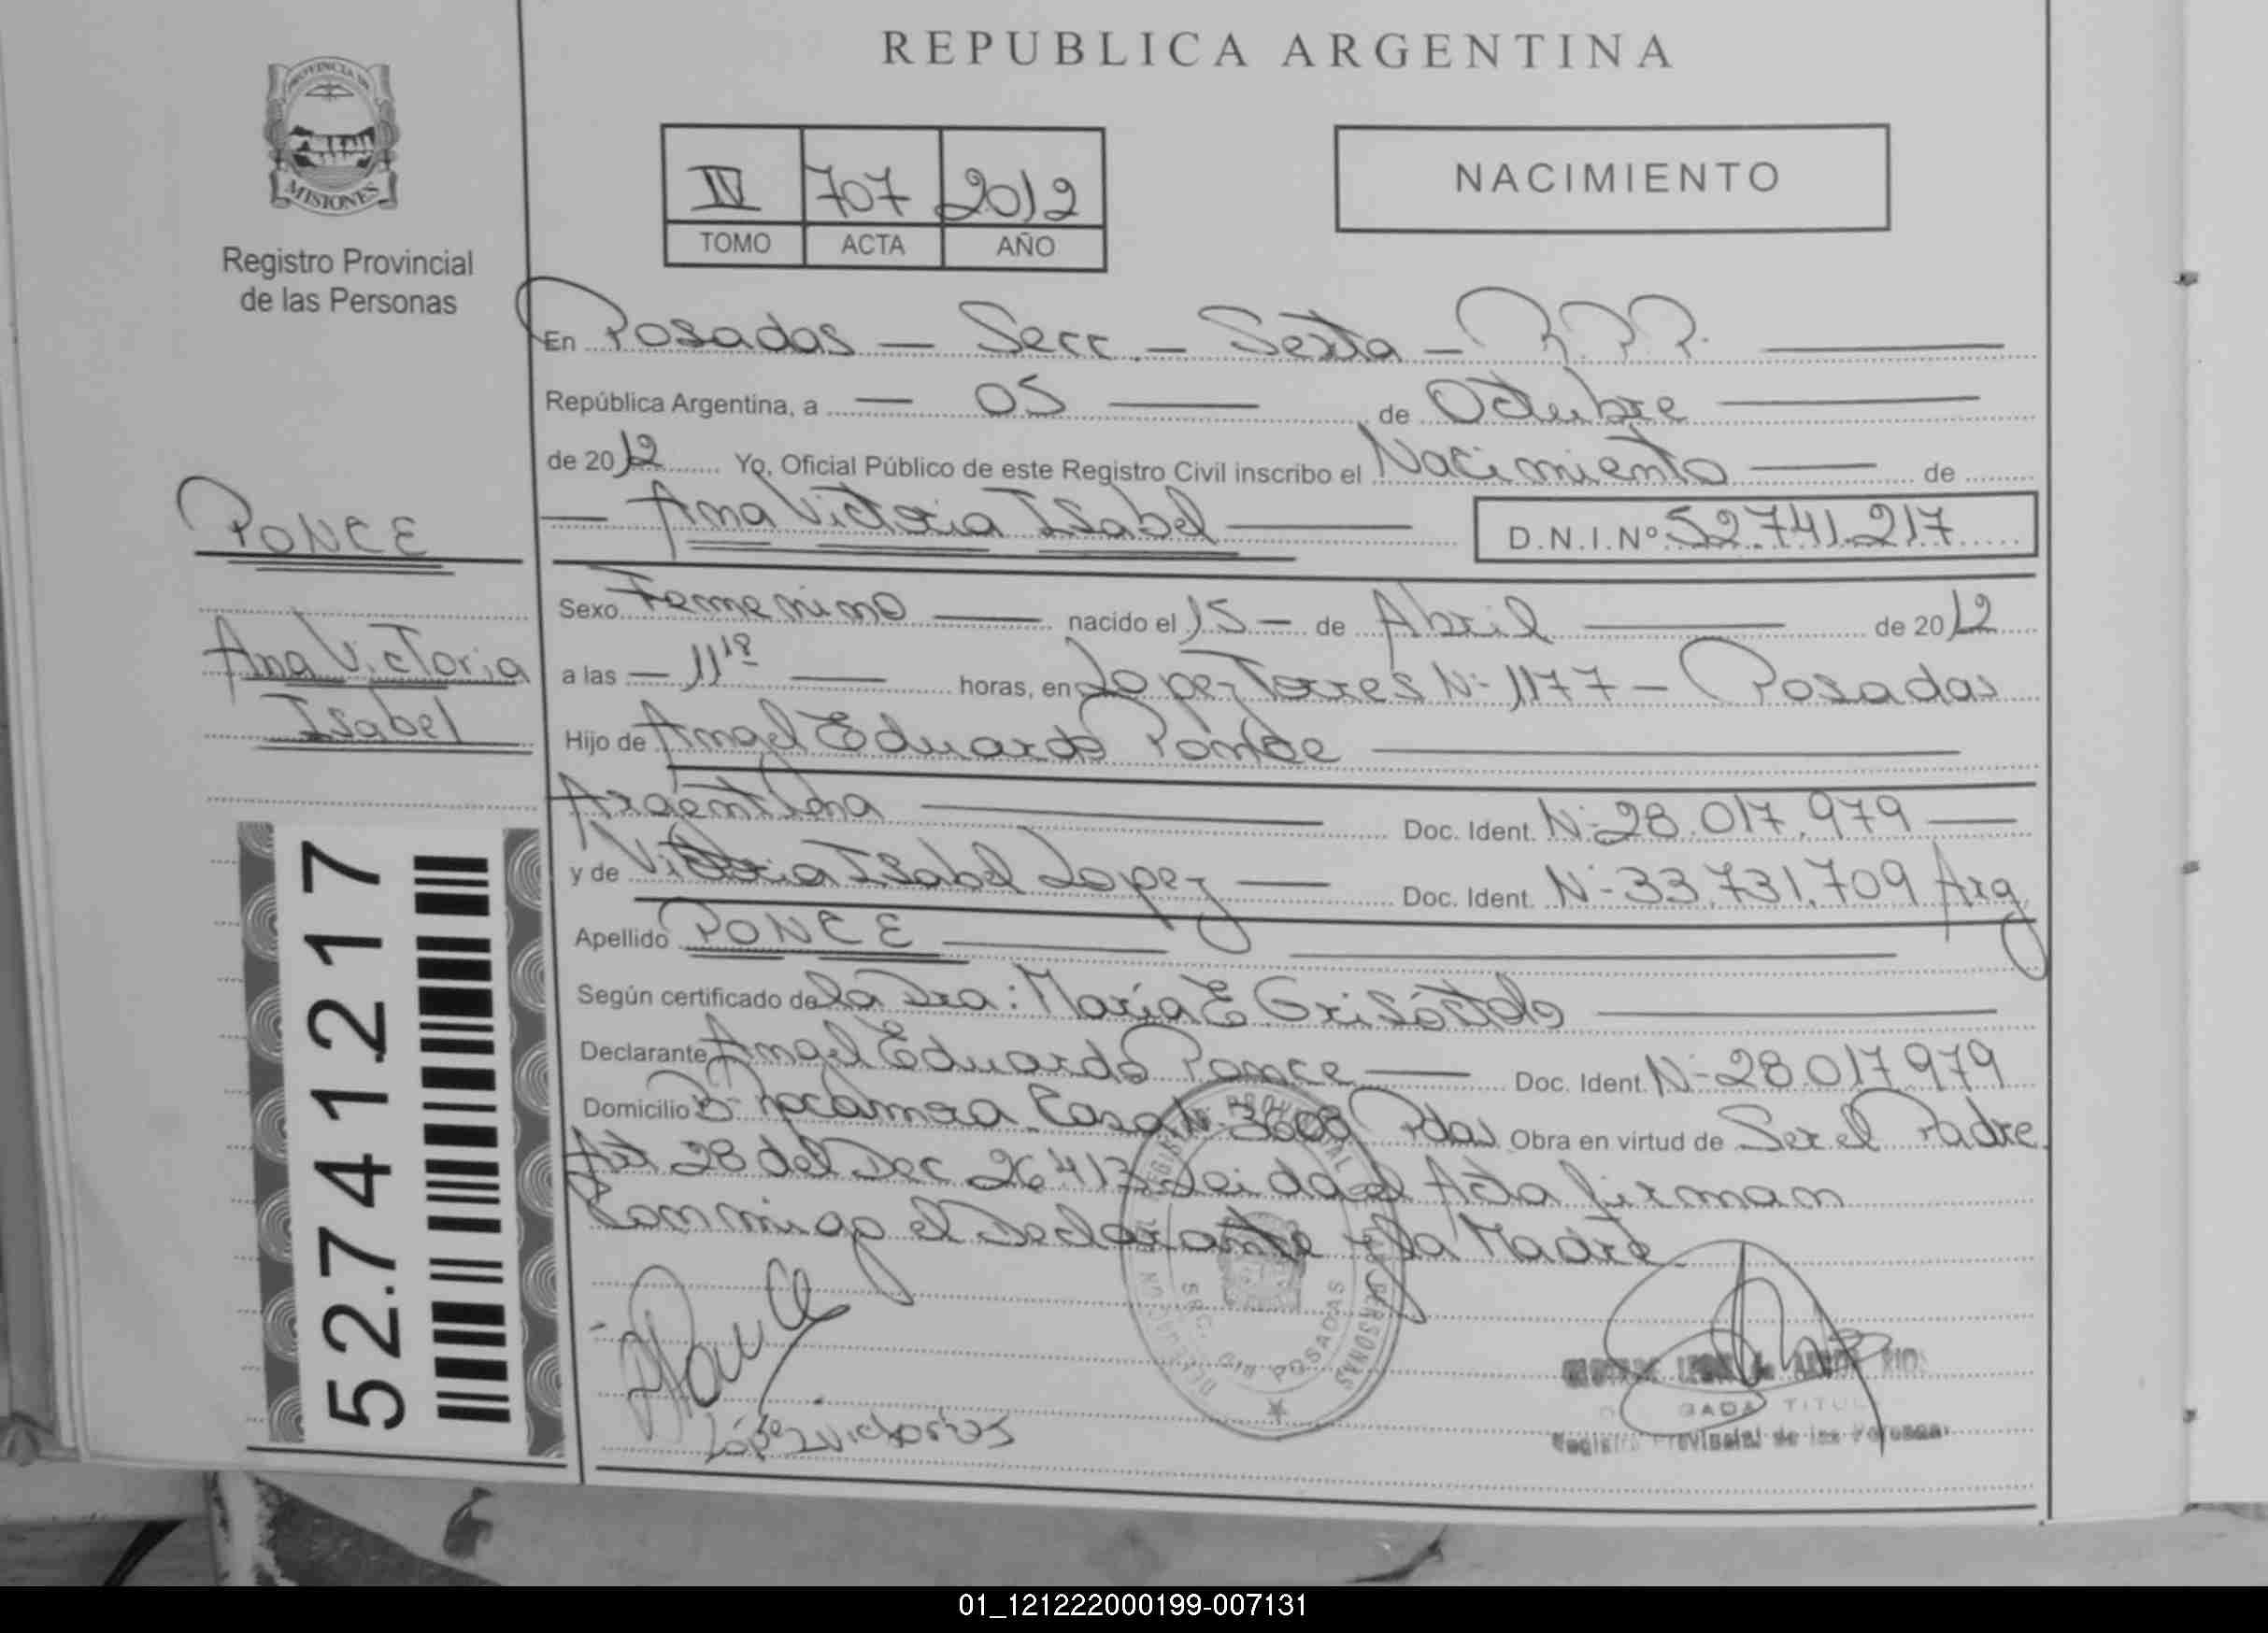 REPUBLICA ARGENTINA
PROVINCIA DE
MISIONES
Registro Provincial
de las Personas
IV 707 2012
TOMO ACTA AÑO
NACIMIENTO
En Posadas — Secc. — Sexta — R.P.P.
República Argentina, a — 05 — de Octubre
de 2012 Yo, Oficial Público de este Registro Civil inscribo el Nacimiento — de
— Ana Victoria Isabel — D.N.I.Nº 52.741.217
PONCE
Ana Victoria
Isabel
Sexo Femenino — nacido el 15 — de Abril — de 2012
a las — 11 18 — horas, en Lopez Torres Nº 1177 — Posadas
Hijo de Angel Eduardo Ponce
Argentina — Doc. Ident. Nº 28.017.979 —
y de Victoria Isabel Lopez — Doc. Ident. Nº 33.731.709 Arg
Apellido PONCE
Según certificado de la Dra: María E
Declarante Angel Eduardo Ponce — Doc. Ident. Nº 28.017.979
Domicilio Bº Rocamora Casa Nº Pdas Obra en virtud de Ser el Padre
Art 28 del Dec 26.413 Leida el Acta firman
Conmigo el Declarante y la Madre
52.741.217
SEC. 6ta POSADAS
López Victoria
Registro Provincial de las Personas
01_121222000199-007131